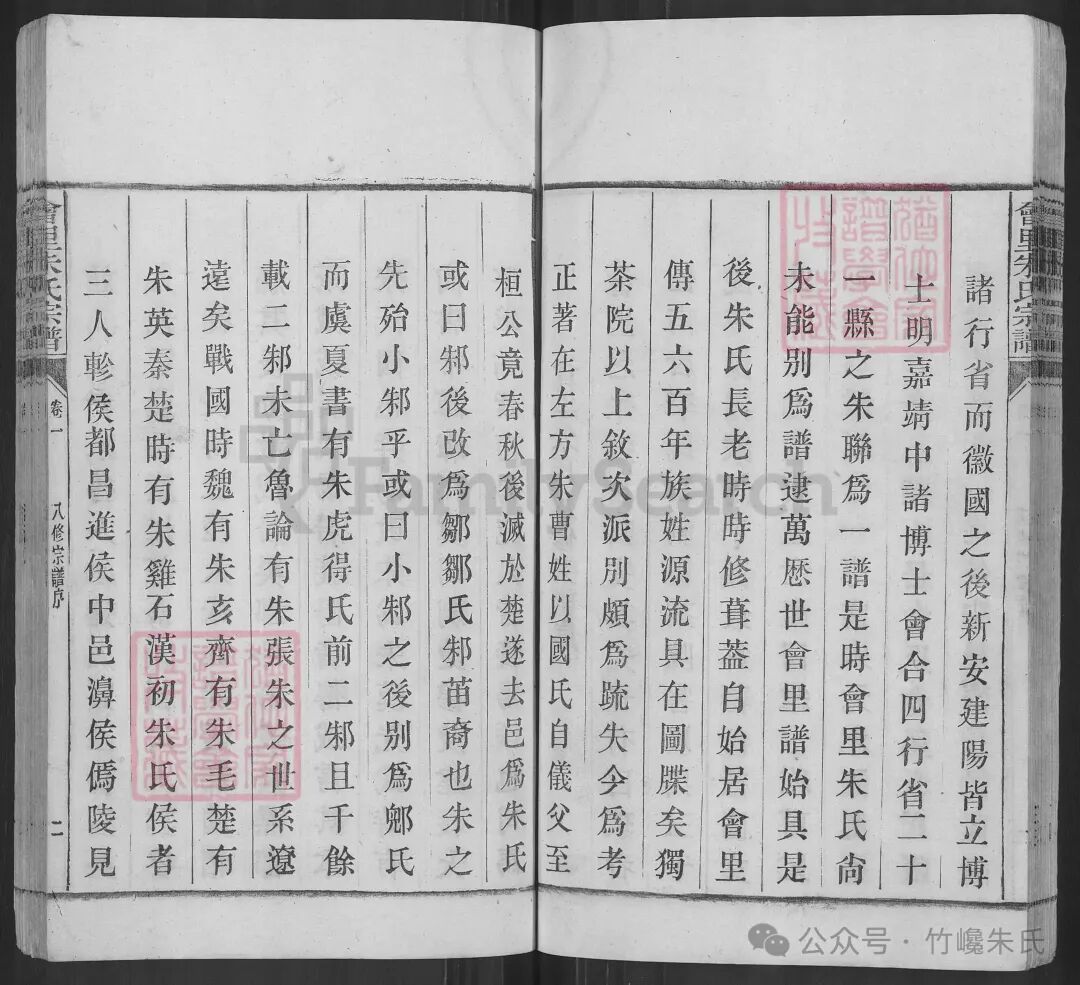 會里朱氏宗譜
諸行省而徽國之後新安建陽皆立博
士明嘉靖中諸博士會合四行省二十
一縣之朱聯爲一譜是時會里朱氏尙
未能別爲譜逮萬厯世會里譜始具是
後朱氏長老時時修葺葢自始居會里
傳五六百年族姓源流具在圖牒矣獨
茶院以上敘次派別頗爲䟽失今爲考
正著在左方朱曹姓以國氏自儀父至
桓公竟春秋後滅於楚遂去邑爲朱氏
或曰邾後改爲鄒鄒氏邾苗裔也朱之
先殆小邾乎或曰小邾之後別爲郳氏
而虞夏書有朱虎得氏前二邾且千餘
載二邾未亡魯論有朱張朱之世系遼
遠矣戰國時魏有朱亥齊有朱毛楚有
朱英秦楚時有朱雞石漢初朱氏侯者
三人軫侯都昌進侯中邑濞侯傿陵見
會里朱氏宗譜
卷一
八修宗譜序
二
FamilySearch
公众号·竹巉朱氏